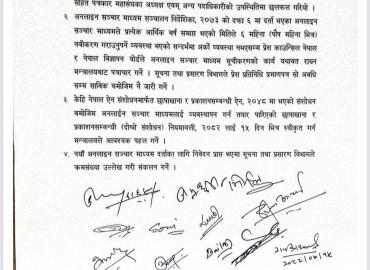 सहित पत्रकार महासंघका अध्यक्ष एवम् अन्य पदाधिकारीको उपस्थितिमा छलफल गरियो ।
२. अनलाइन सञ्चार माध्यम सञ्चालन निर्देशिका, २०७३ को दफा ६ मा दर्ता भएका अनलाइन
सञ्चार माध्यमले प्रत्येक आर्थिक बर्ष समाप्त भएको मितिले ६ महिना (पौष महिना भित्र)
नवीकरण गराउनुपर्ने व्यवस्था भएको सन्दर्भमा अर्को व्यवस्था नभएसम्म प्रेस काउन्सिल नेपाल
र नेपाल विज्ञापन बोर्डले अनलाइन सञ्चार माध्यम सूचीकरणको कार्य यथावत राख्न
मन्त्रालयबाट पत्राचार गर्ने । सूचना तथा प्रसारण विभागले प्रेस प्रतिनिधि प्रमाणपत्र सो अवधि
सम्म साविक बमोजिम नै जारी गर्ने ।
३. केहि नेपाल ऐन संशोधनमार्फत छापाखाना र प्रकाशनसम्बन्धी ऐन, २०४८ मा भएको संशोधन
बमोजिम अनलाईन सञ्चार माध्यमलाई व्यवस्थापन गर्न तयार पारिएको छापाखाना र
प्रकाशनसम्बन्धी (दोश्रो संशोधन) नियमावली, २०८२ लाई १५ दिन भित्र स्वीकृत गर्न
मन्त्रालयले आवश्यक पहल गर्ने ।
४. नयाँ अनलाइन सञ्चार माध्यम दर्ताका लागि निवेदन प्राप्त भएमा सूचना तथा प्रसारण विभागले
क्रमसंख्या उल्लेख गरी संकलन गर्ने ।